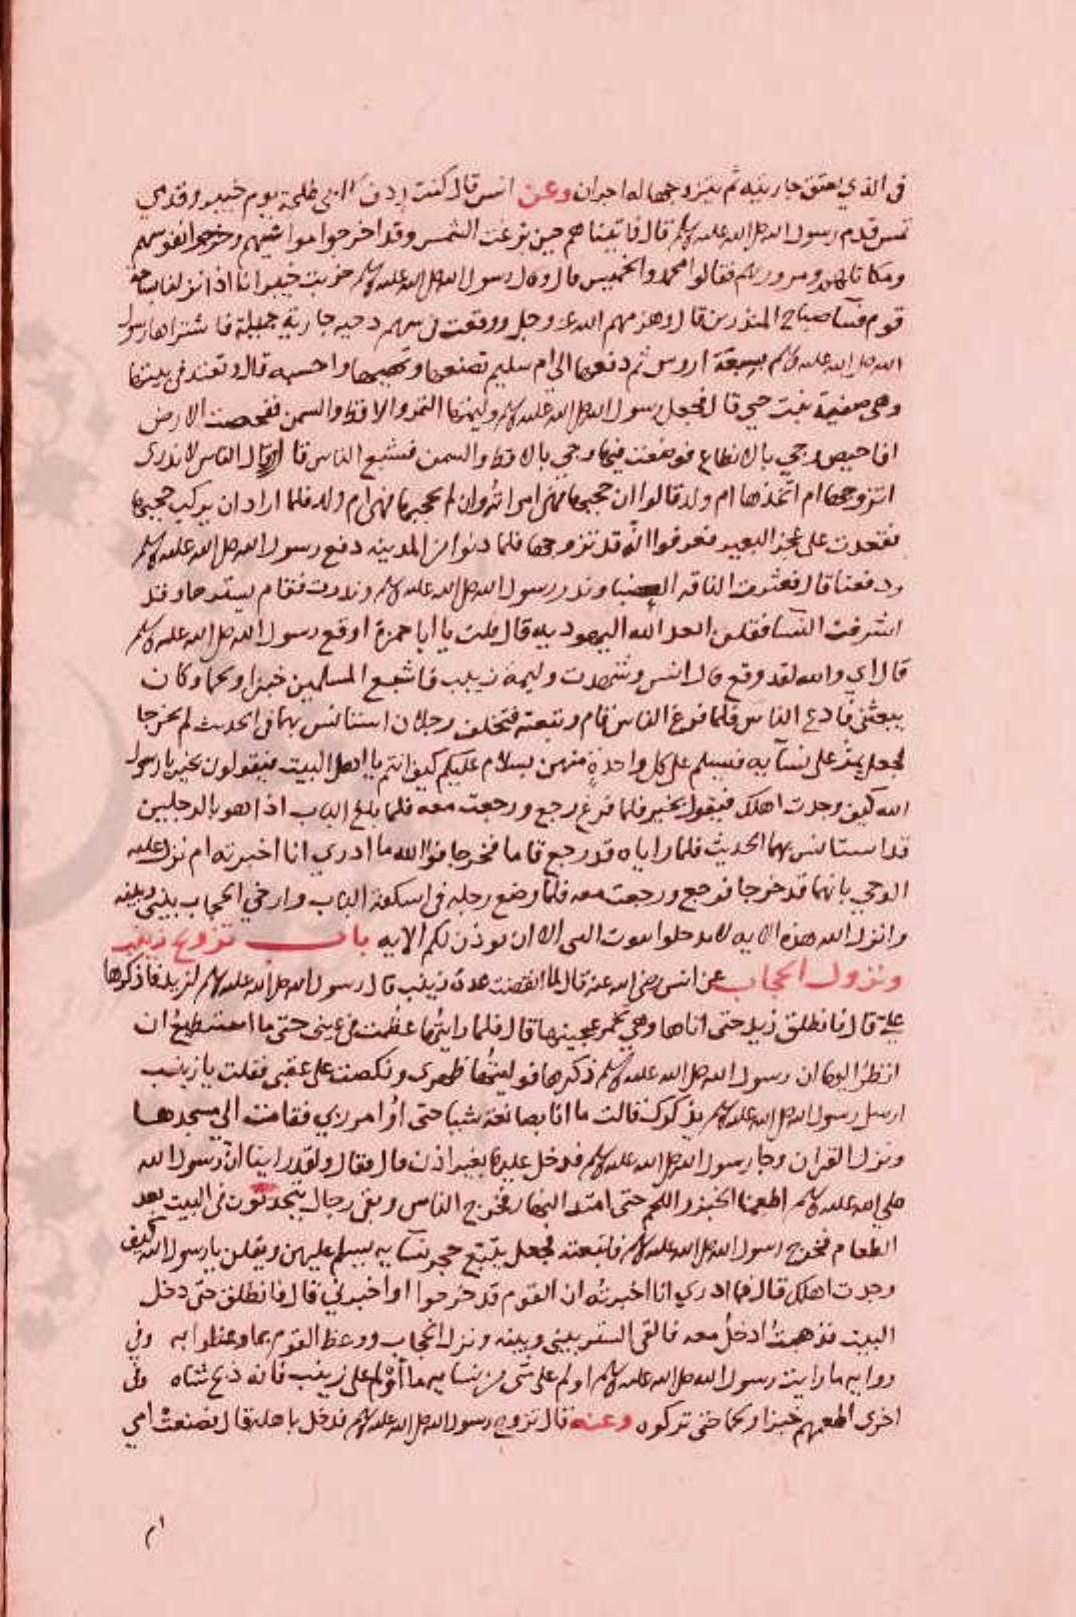 في الذي يعتق جاريته ثم يتزوجها له اجران وعن انس قال كنت ردف ابي طلحة يوم خيبر وقدمي
تمس قدم رسول الله صلى الله عليه وسلم قال فاتيناهم حين بزغت الشمس وقد اخرجوا مواشيهم وخرجوا بفوسهم
ومكاتلهم ومرورهم فقالوا محمد والخميس قال وقال رسول الله صلى الله عليه وسلم خربت خيبر انا اذا نزلنا بساحة
قوم فسآ صباح المنذرين قال وهزمهم الله عز وجل ووقعت في سهم دحيه جارية جميلة فاشتراها رسول
الله صلى الله عليه وسلم بسبعة اروس ثم دفعها الى ام سليم تصنعها وتهييها واحسبه قال وتعتد في بيتها
وهي صفية بنت حيي قال فجعل رسول الله صلى الله عليه وسلم وليمتها التمر والاقط والسمن فحصت الارض
افاحيص وجي بالانطاع فوضعت فيها وجي بالاقط والسمن فشبع الناس قال وقال الناس لا ندري
اتزوجها ام اتخذها ام ولد قالوا ان حجبها فهي امراته وان لم يحجبها فهي ام ولد فلما اراد ان يركب حجبها
فقعدت على عجز البعير فعرفوا انه قد تزوجها فلما دنوا من المدينه دفع رسول الله صلى الله عليه وسلم
ودفعنا قال فعثرت الناقه العضبا وندر رسول الله صلى الله عليه وسلم وندرت فقام يسترها وقد
اشرفت النسا فقلن ابعد الله اليهوديه قال قلت يا ابا حمزة اوقع رسول الله صلى الله عليه وسلم
قال اي والله لقد وقع قال انس وشهدت وليمة زينب فاشبع المسلمين خبزا ولحما وكان
يبعثني فادع الناس فلما فرغ الناس قام وتبعته فتخلف رجلان استانس بهما الحديث لم يخرجا
فجعل يمر على نسآيه فيسلم على كل واحدة منهن سلام عليكم كيف انتم يا اهل البيت فيقولون بخير يا رسول
الله كيف وجدت اهلك فيقول بخير فلما فرغ رجع ورجعت معه فلما بلغ الباب اذا هو بالرجلين
قد استانس بهما الحديث فلما راياه قد رجع قاما فخرجا فوالله ما ادري انا اخبرته ام نزل عليه
الوحي بانهما قد خرجا فرجع ورجعت معه فلما وضع رجله في اسكفة الباب وارخي الحجاب بيني وبينه
وانزل الله هذه الايه لا تدخلوا بيوت النبي الا ان يوذن لكم الايه باب تزوج زينب
ونزول الحجاب عن انس رضي الله عنه قال لما انقضت عدة زينب قال رسول الله صلى الله عليه وسلم لزيد فاذكرها
علي قال فانطلق زيد حتى اتاها وهي تخمر عجينها قال فلما رايتها عظمت في عيني حتى ما استطيع ان
انظر اليها ان رسول الله صلى الله عليه وسلم ذكرها فوليتها ظهري ونكصت على عقبي فقلت يا زينب
ارسل رسول الله صلى الله عليه وسلم يذكرك قالت ما انا بصانعة شيا حتى اوامر ربي فقامت الى مسجدها
ونزل القران وجا رسول الله صلى الله عليه وسلم فدخل عليها بغير اذن قال فقال ولقد راينا ان رسول الله
صلى الله عليه وسلم اطعمنا الخبز واللحم حتى امتد النهار فخرج الناس وبقي رجال يتحدثون في البيت بعد
الطعام فخرج رسول الله صلى الله عليه وسلم فاتبعته فجعل يتتبع حجر نسآيه يسلم عليهن ويقلن يا رسول الله كيف
وجدت اهلك قال فما ادري انا اخبرته ان القوم قد خرجوا او اخبرني قال فانطلق حتى دخل
البيت فذهبت ادخل معه فالقى الستر بيني وبينه ونزل الحجاب ووعظ القوم بما وعظوا به وفي
روايه ما رايت رسول الله صلى الله عليه وسلم اولم على شي من نسايه ما اولم على زينب فانه ذبح شاه وفي
اخرى اطعمهم خبزا ولحما حتى تركوه وعنه قال تزوج رسول الله صلى الله عليه وسلم فدخل باهله قال فصنعت امي
ام